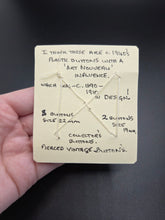 I THINK THESE ARE C. 1940'S
PLASTIC BUTTONS WITH A
"ART NOUVEAU"
INFLUENCE.
WHICH WAS C. 1890 -
1910 IN DESIGN
8 BUTTONS
SIZE 22mm
2 BUTTONS
SIZE 19mm
COLLECTORS
BUTTONS.
PIERCED VINTAGE BUTTONS.